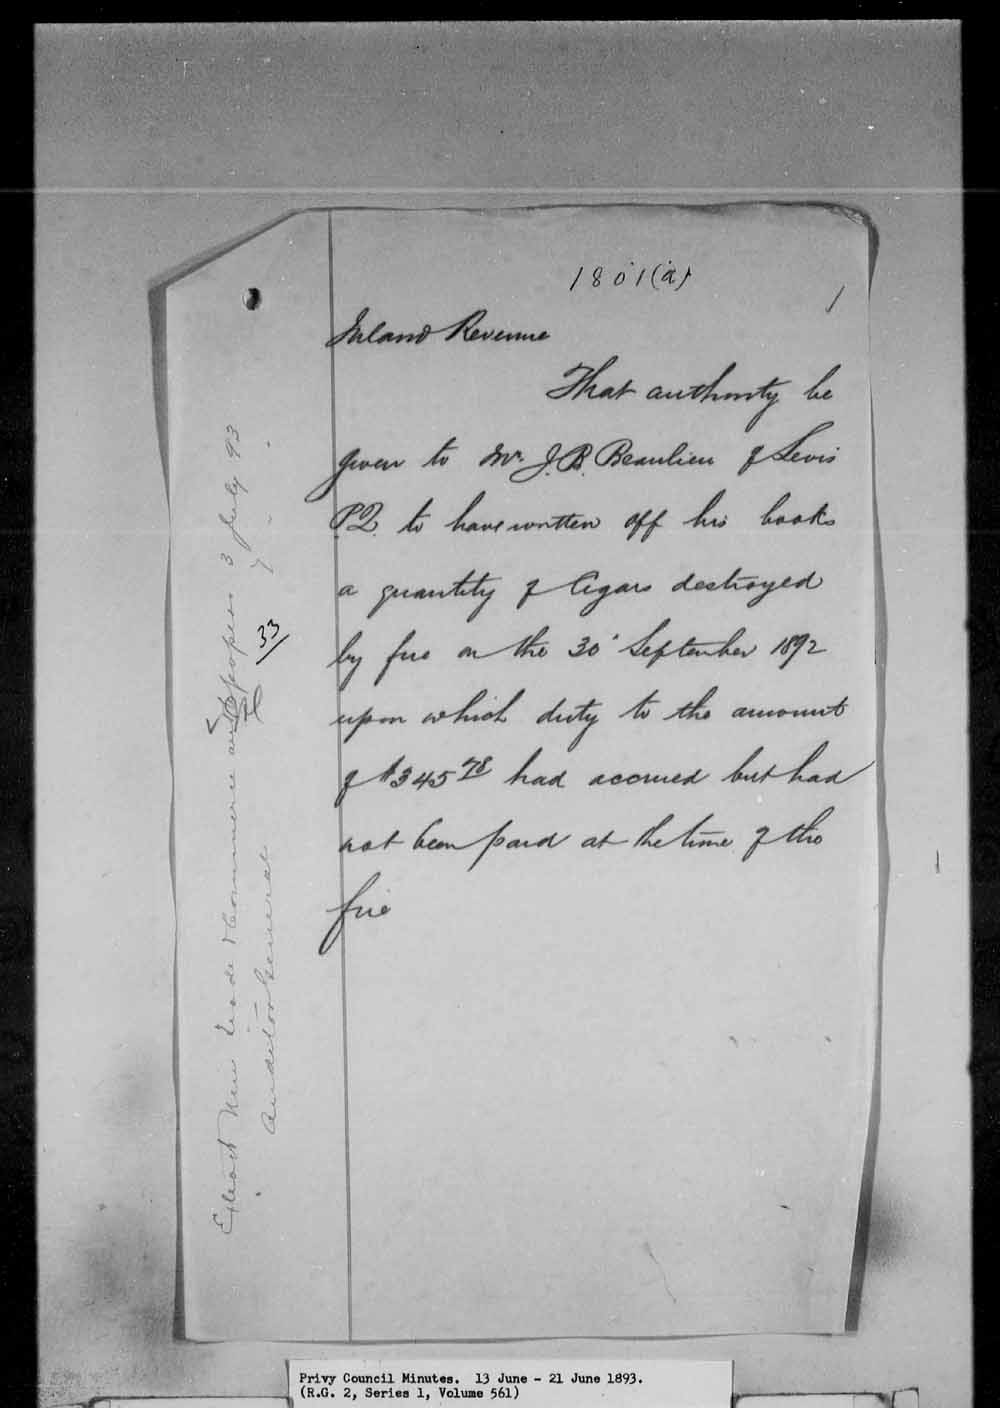 1801(a)
1
Inland Revenue
That authority be
given to Mr. J. B. Beaulieu of Levis
P.Q. to have written off his books
a quantity of Cigars destroyed
by fire on the 30' September 1892
upon which duty to the amount
of $345 78 had accrued but had
not been paid at the time of the
fire
Extract Min Trade & Commerce and papers 3 July 93
Auditor General 7 " "
33/
Privy Council Minutes. 13 June - 21 June 1893.
(R.G. 2, Series 1, Volume 561)